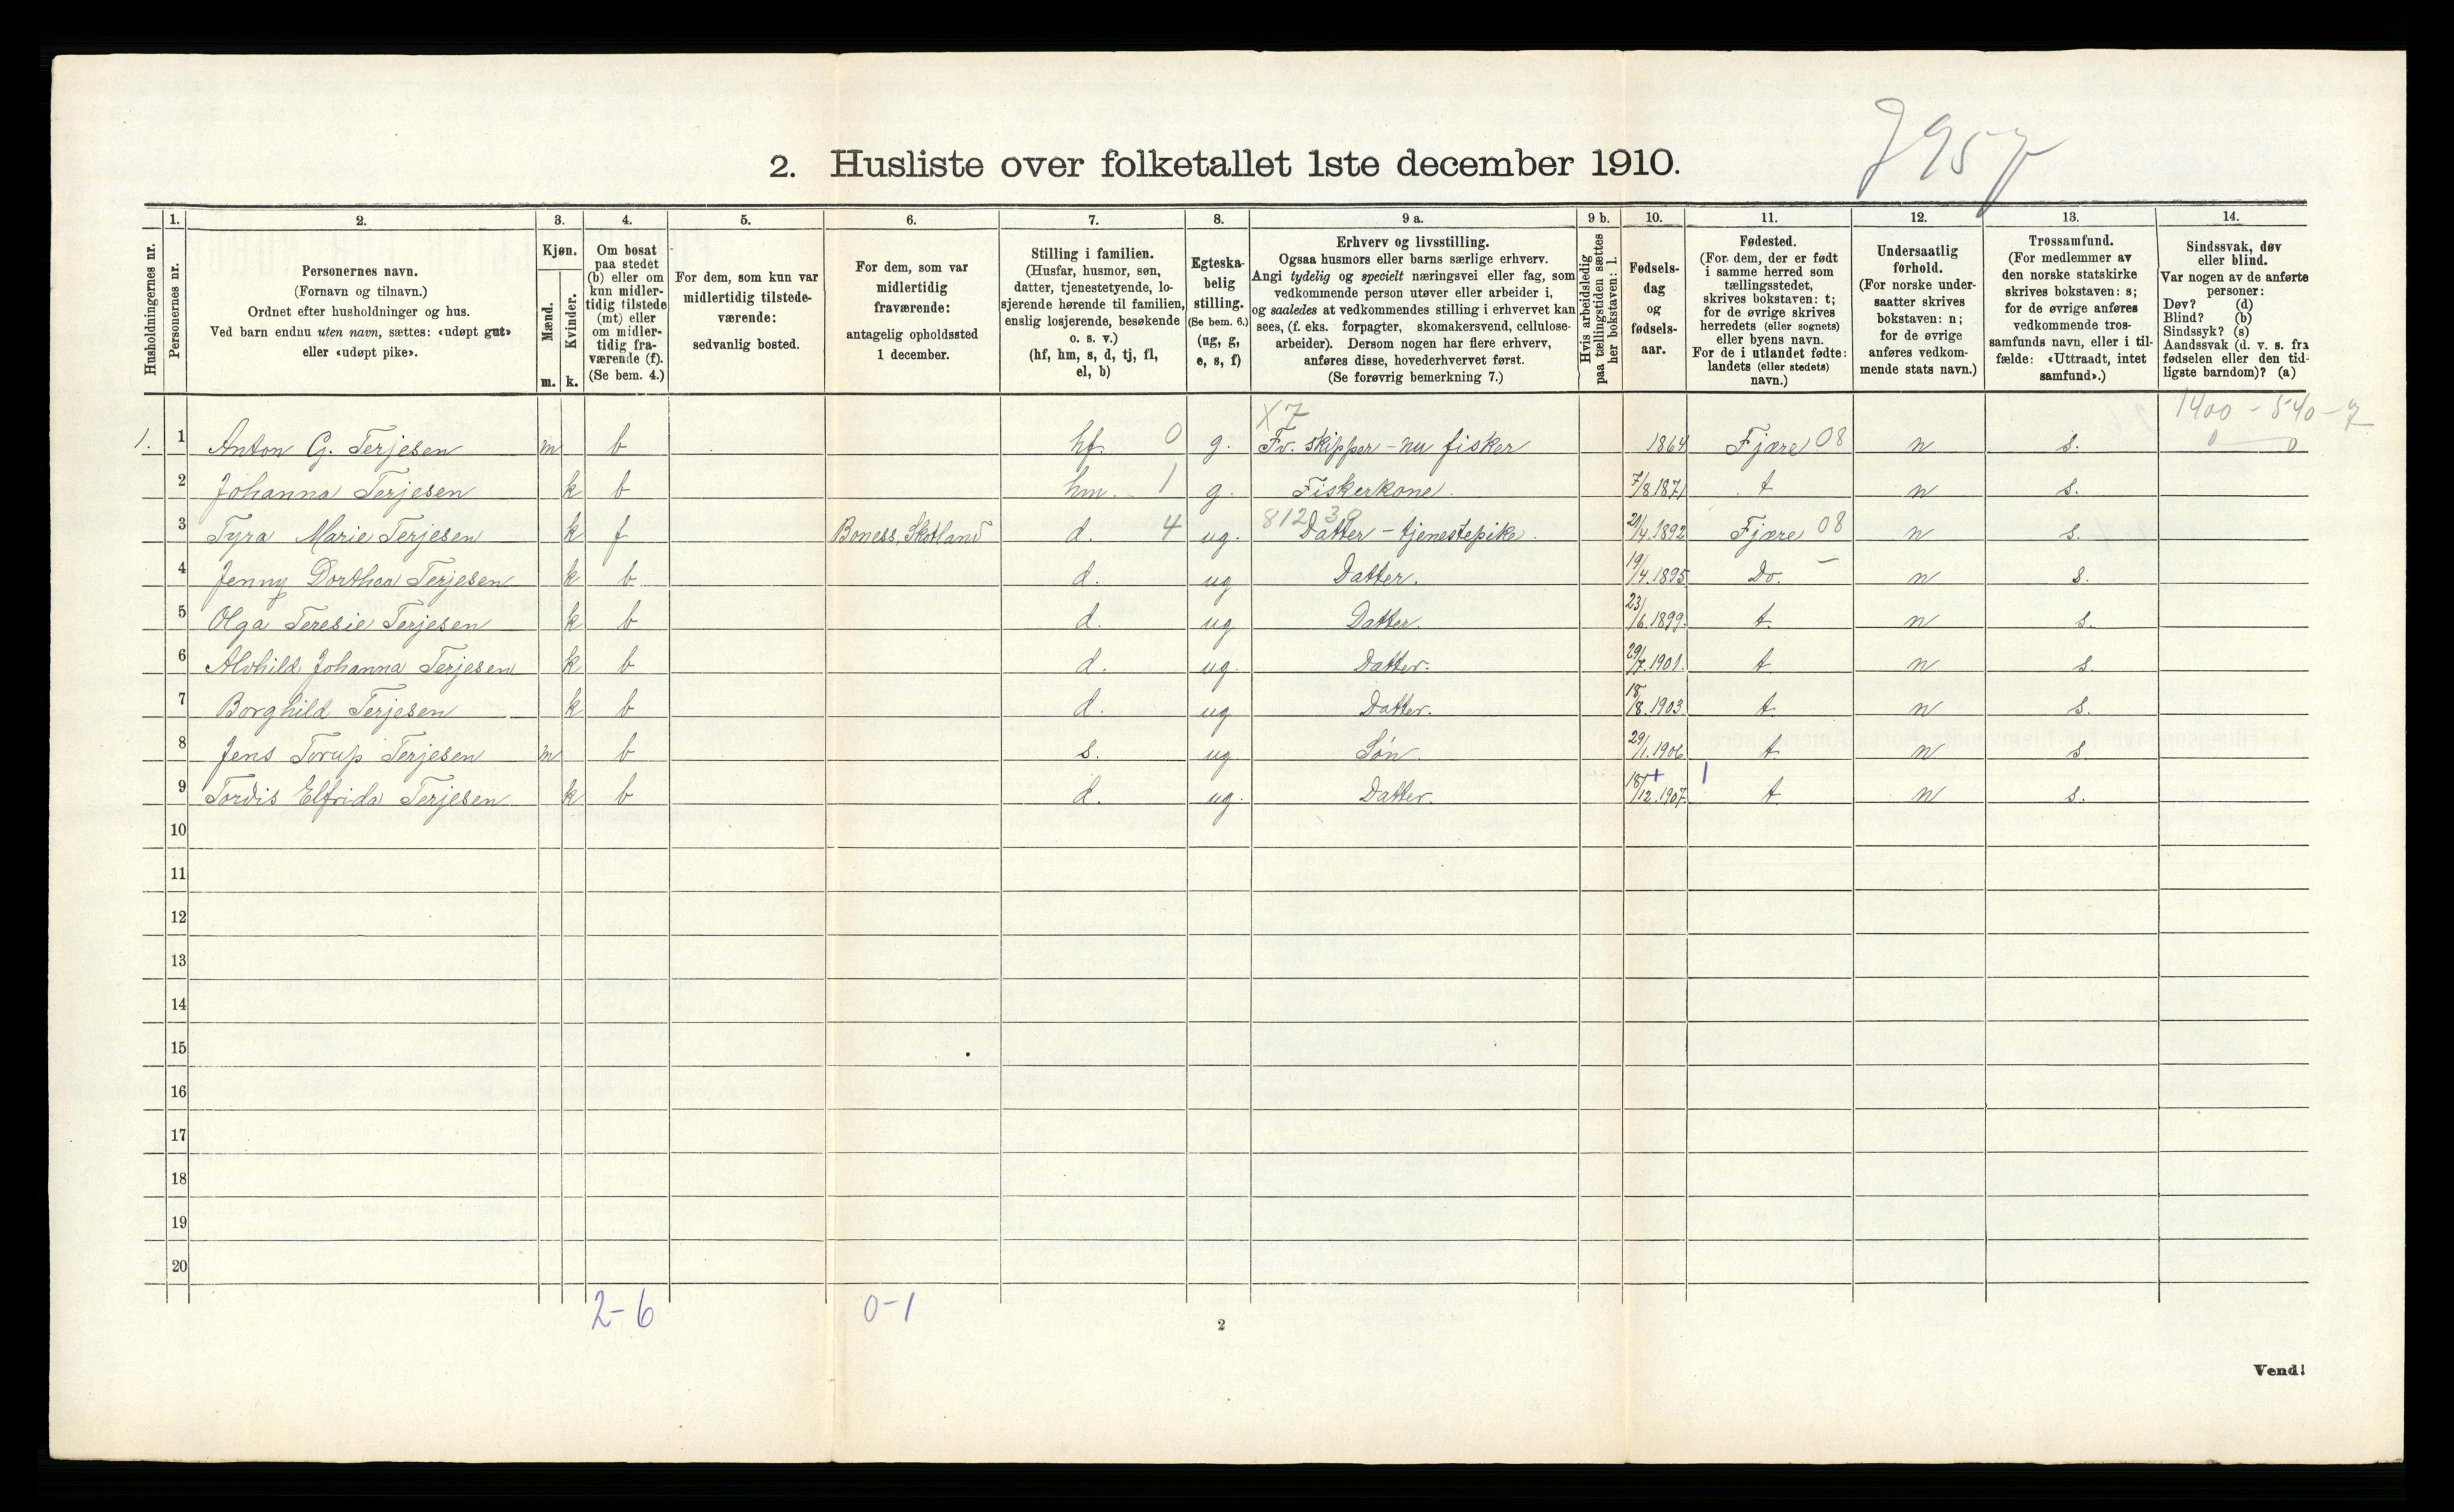 7957
2. Husliste over folketallet 1ste december 1910.
1. 2. 3. 4. 5. 6. 7. 8. 9 a. 9 b. 10. 11. 12. 13. 14.
Husholdningernes nr.
Personernes nr.
Personernes navn.
(Fornavn og tilnavn.)
Ordnet efter husholdninger og hus.
Ved barn endnu uten navn, sættes: «udøpt gut»
eller «udøpt pike».
Kjøn.
Mænd.
Kvinder.
m. k.
Om bosat
paa stedet
(b) eller om
kun midler-
tidig tilstede
(mt) eller
om midler-
tidig fra-
værende (f).
(Se bem. 4.)
For dem, som kun var
midlertidig tilstede-
værende:
sedvanlig bosted.
For dem, som var
midlertidig
fraværende:
antagelig opholdssted
1 december.
Stilling i familien.
(Husfar, husmor, søn,
datter, tjenestetyende, lo-
sjerende hørende til familien,
enslig losjerende, besøkende
o. s. v.)
(hf, hm, s, d, tj, fl,
el, b)
Egteska-
belig
stilling.
(Se bem. 6.)
(ug, g,
e, s, f)
Erhverv og livsstilling.
Ogsaa husmors eller barns særlige erhverv.
Angi tydelig og specielt næringsvei eller fag, som
vedkommende person utøver eller arbeider i,
og saaledes at vedkommendes stilling i erhvervet kan
sees, (f. eks. forpagter, skomakersvend, cellulose-
arbeider). Dersom nogen har flere erhverv,
anføres disse, hovederhvervet først.
(Se forøvrig bemerkning 7.)
Hvis arbeidsledig
paa tællingstiden sættes
her bokstaven: l.
Fødsels-
dag
og
fødsels-
aar.
Fødested.
(For dem, der er født
i samme herred som
tællingsstedet,
skrives bokstaven: t;
for de øvrige skrives
herredets (eller sognets)
eller byens navn.
For de i utlandet fødte:
landets (eller stedets)
navn.)
Undersaatlig
forhold.
(For norske under-
saatter skrives
bokstaven: n;
for de øvrige
anføres vedkom-
mende stats navn.)
Trossamfund.
(For medlemmer av
den norske statskirke
skrives bokstaven: s;
for de øvrige anføres
vedkommende tros-
samfunds navn, eller i til-
fælde: «Uttraadt, intet
samfund».)
Sindssvak, døv
eller blind.
Var nogen av de anførte
personer:
Døv? (d)
Blind? (b)
Sindssyk? (s)
Aandssvak (d. v. s. fra
fødselen eller den tid-
ligste barndom)? (a)
X7 1400 - 540 - 7
1. 1 Anton G. Terjesen m b hf. 0 g. Fv. skipper - nu fisker 1864 Fjære 08 n s. 0 — 0
2 Johanna Terjesen k b hm. 1 g. Fiskerkone. 7/8.1871 t n s.
812 30
3 Tyra Marie Terjesen k f Boness, Skotland d. 4 ug. Datter - tjenestepike. 21/4.1892 Fjære 08 n s.
4 Jenny Dorthea Terjesen k b d. ug Datter. 19/4.1895 Do. — n s.
5 Olga Teresie Terjesen k b d. ug Datter. 23/6.1899. t. n s.
6 Alvhild Johanna Terjesen k b d. ug. Datter. 29/7.1901. t. n s.
7 Borghild Terjesen k b d. ug Datter. 18/8.1903. t. n s.
8 Jens Torup Terjesen m b s. ug Søn. 29/1.1906 t. n s.
9 Tordis Elfrida Terjesen k b d. ug. Datter. 18/12.1907. t. n s.
10
11
12
13
14
15
16
17
18
19
20
2-6 0-1
2
Vend!